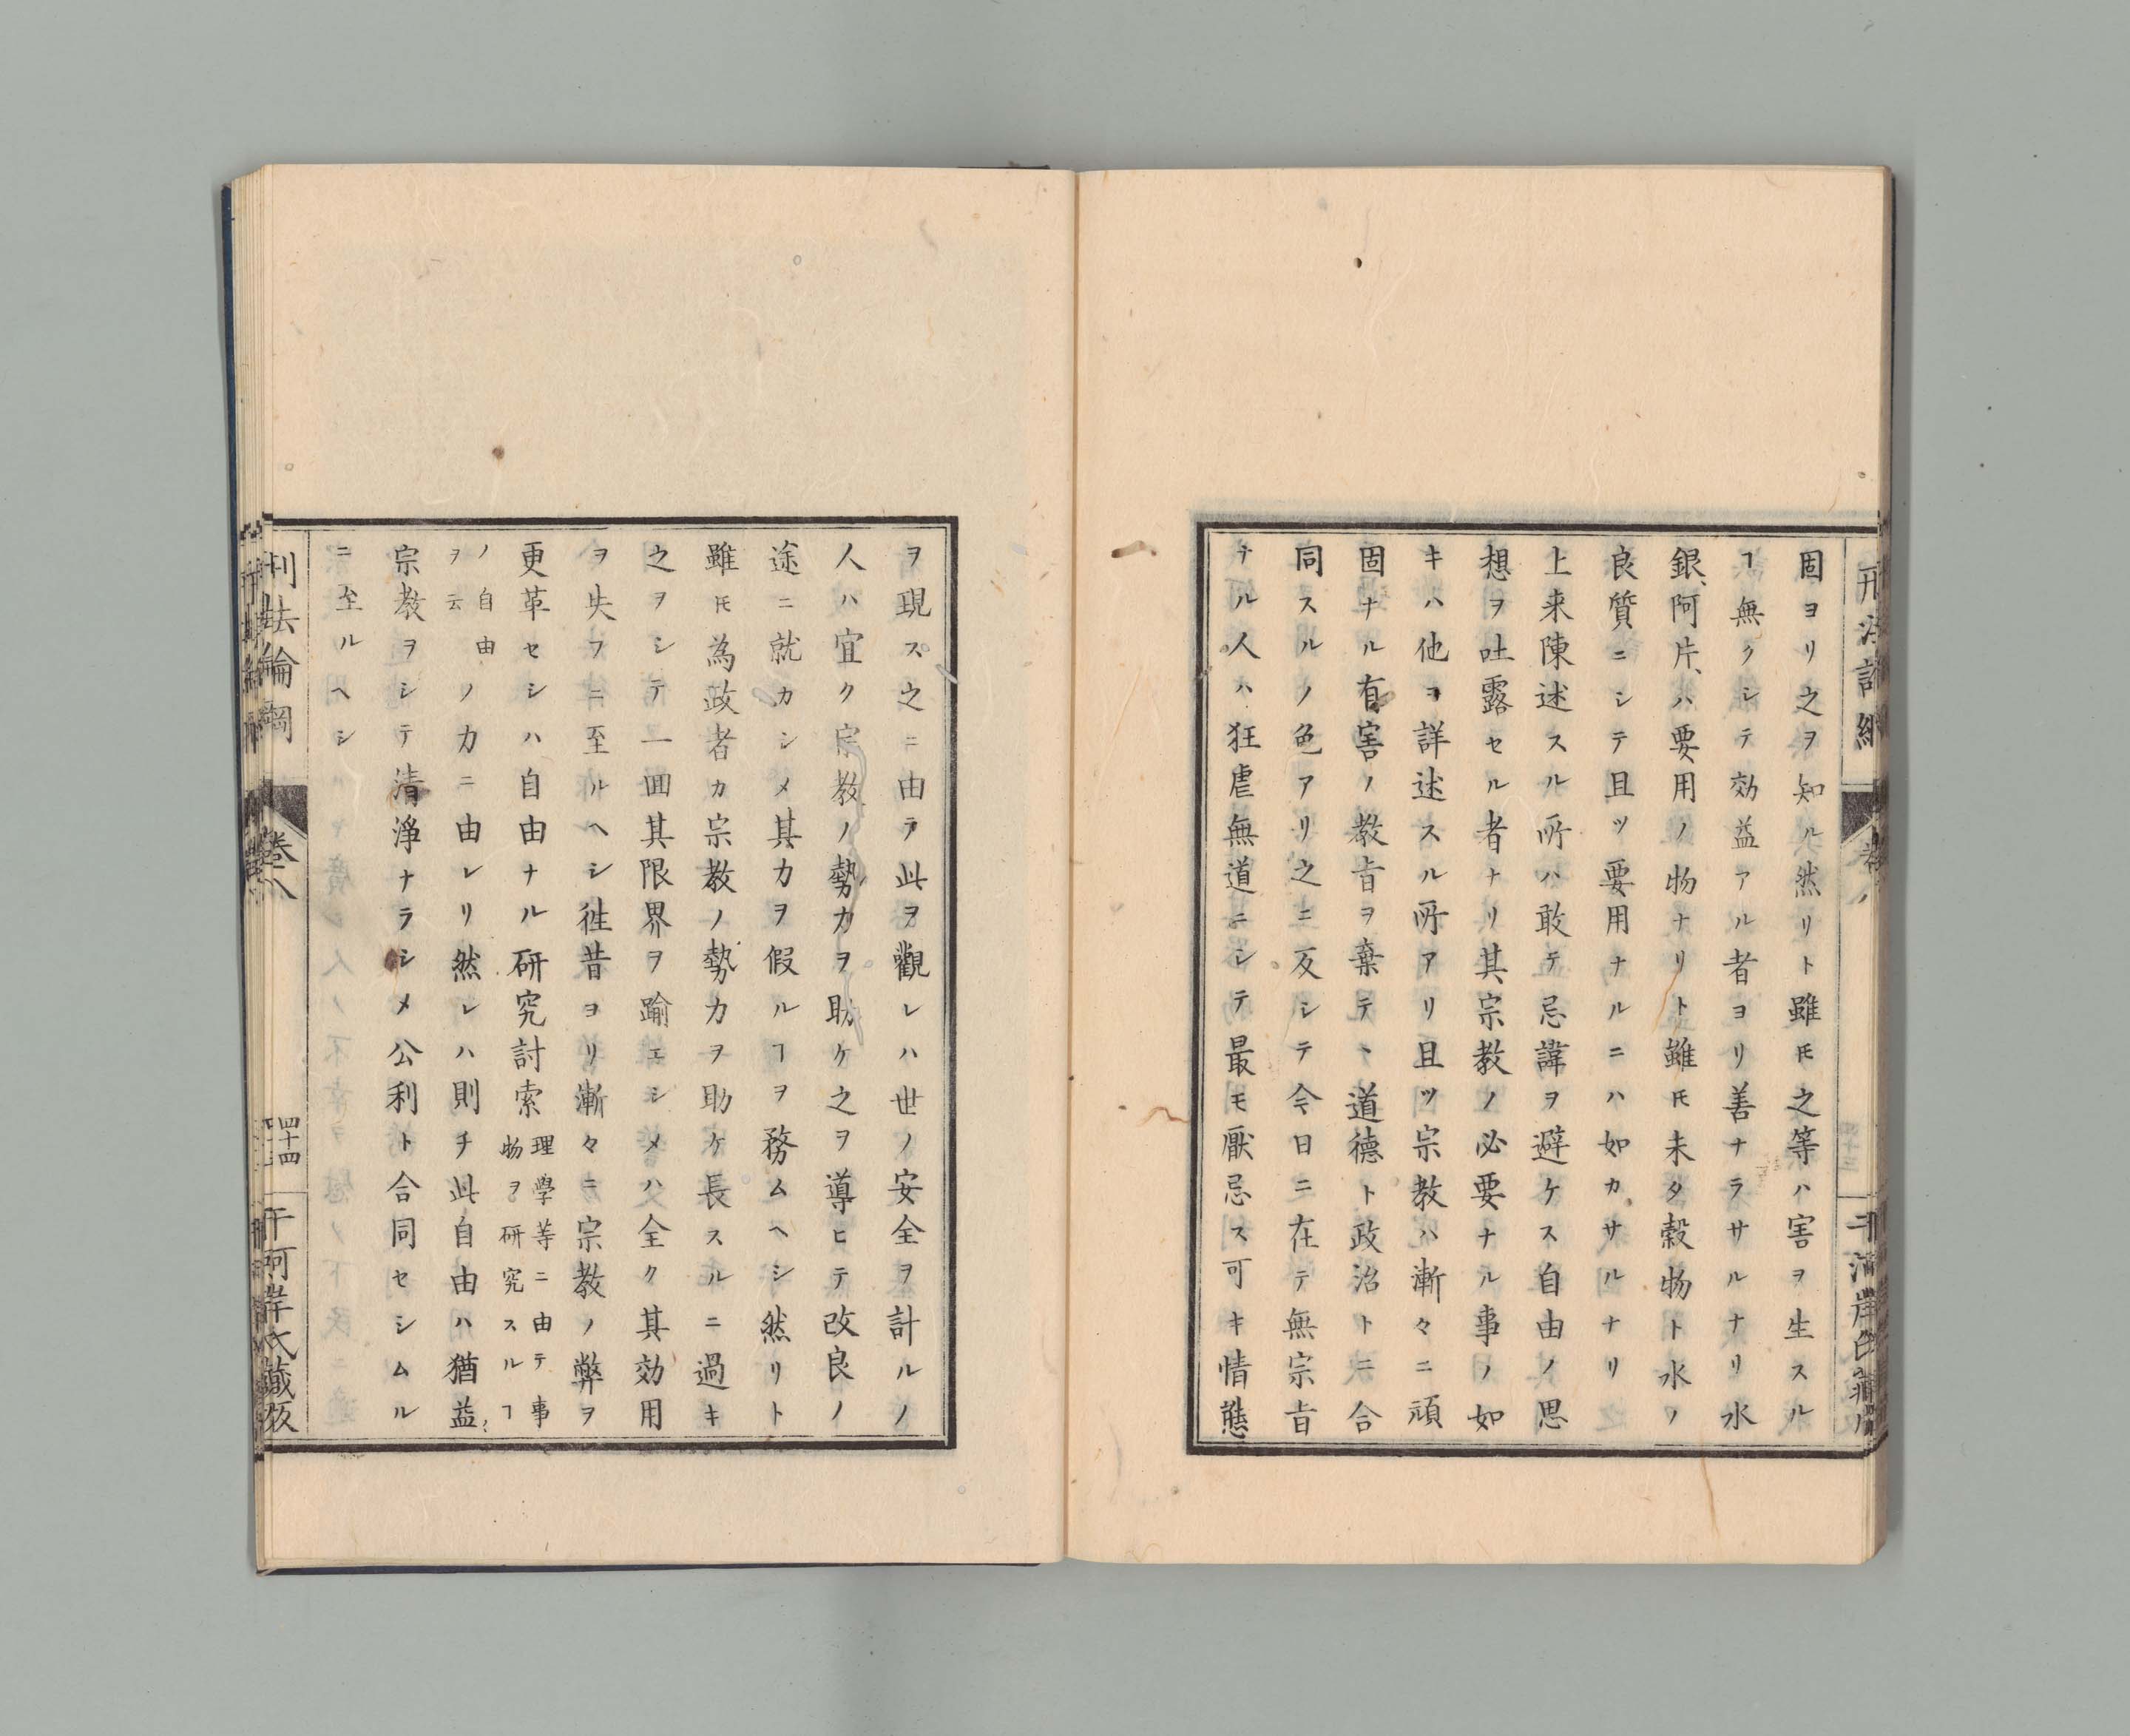 固ヨリ之ヲ知ル然リト雖𪜈之等ハ害ヲ生スル
ヿ無クシテ効益アル者ヨリ善ナラサルナリ水
銀、阿片、ハ要用ノ物ナリト雖𪜈未タ穀物ト水ノ
良質ニシテ且ツ要用ナルニハ如カサルナリ
上来陳述スル所ハ敢テ忌諱ヲ避ケス自由ノ思
想ヲ吐露セル者ナリ其宗教ノ必要ナル事ノ如
キハ他ヨ詳述スル所アリ且ツ宗教ハ漸々ニ頑
固ナル有害ノ教旨ヲ棄テヽ道德ト政治トニ合
同スルノ色アリ之ニ反シテ今日ニ在テ無宗旨
ナル人ハ狂虐無道ニシテ最モ厭忌ス可キ情態
ヲ現ス之ニ由テ此ヲ觀レハ世ノ安全ヲ計ルノ
人ハ宜ク宗教ノ勢力ヲ助ケ之ヲ導ヒテ改良ノ
途ニ就カシメ其力ヲ假ルヿヲ務ムヘシ然リト
雖𪜈為政者カ宗教ノ勢力ヲ助ケ長スルニ過キ
之ヲシテ一囬其限界ヲ踰エシメハ全ク其効用
ヲ失フニ至ルヘシ徃昔ヨリ漸々ニ宗教ノ弊ヲ
更革セシハ自由ナル研究討索理學等ニ由テ事物ヲ研究スルヿ
ノ自由ヲ云ノ力ニ由レリ然レハ則チ此自由ハ猶益
宗教ヲシテ清淨ナラシメ公利ト合同セシムル
ニ至ルヘシ
刑法論綱
卷八
四十四
干河岸氏藏板